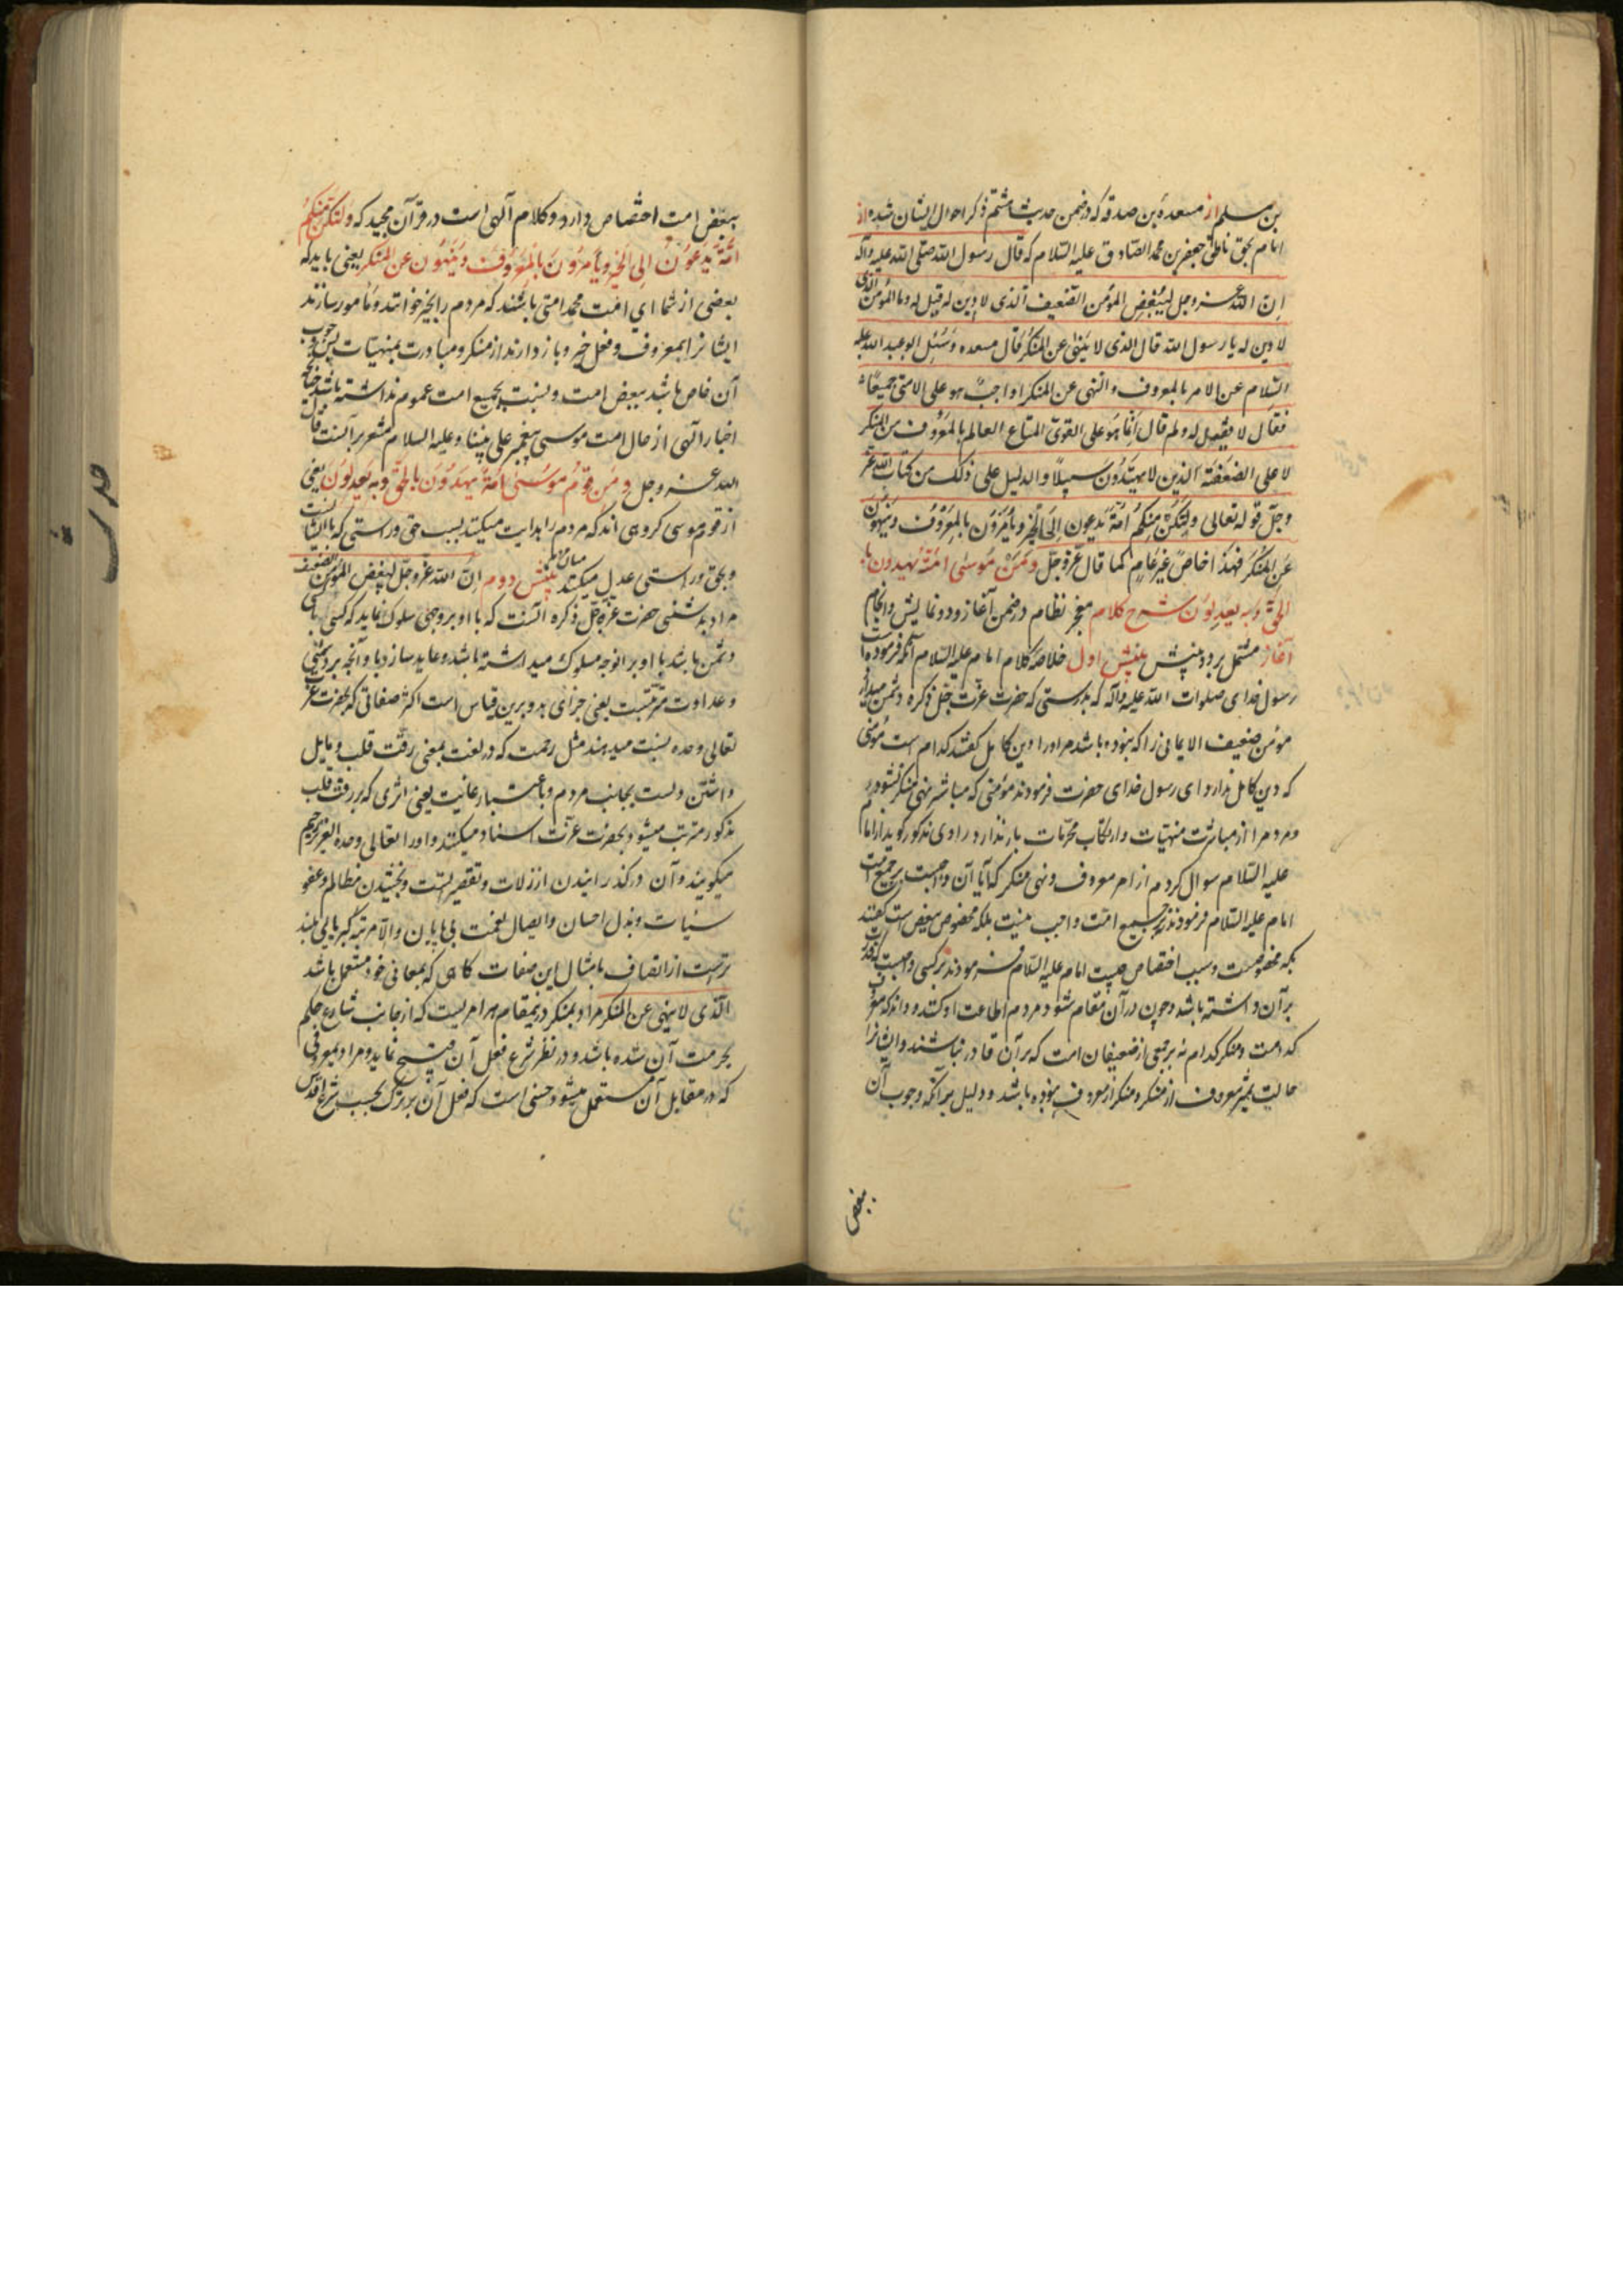 بن مسلم از مسعدة بن صدقه که در ضمن حدیث هشتم ذکر احوال ایشان شده از
امام بحق ناطق جعفر بن محمد الصادق علیه السلام که قال رسول الله صلی الله علیه وآله
ان الله عز وجل لیبغض المؤمن الضعیف الذی لا دین له قیل له وما المؤمن الذی
لا دین له یا رسول الله قال الذی لا ینهی عن المنکر قال مسعده وسئل ابو عبد الله علیه
السلام عن الامر بالمعروف والنهی عن المنکر اواجب هو علی الامة جمیعا
فقال لا فقیل له ولم قال انما هو علی القوی المتاع العالم بالمعروف من المنکر
لا علی الضعفة الذین لا یهتدون سبیلا والدلیل علی ذلک من کتاب الله عز
وجل قوله تعالی ولتکن منکم امة یدعون الی الخیر ویأمرون بالمعروف وینهون
عن المنکر فهذا خاص غیر عام کما قال عز وجل ومن موسی امة یهدون با
لحق وبه یعدلون شرح کلام معجز نظام در ضمن آغاز ودو نمایش وانجام
آغاز مشتمل بر دو بینش بینش اول خلاصه کلام امام علیه السلام آنکه فرموده است
رسول خدای صلوات الله علیه وآله که بدرستی که حضرت عزت جل ذکره دشمن میدارد
مؤمن ضعیف الایمانی را که نبوده باشد مر اورا دین کامل گفتند کدام است مؤمنی
که دین کامل ندارد ای رسول خدای حضرت فرمودند مؤمنی که مباشر نهی منکر نشود
ومردم را از مباشرت منهیات وارتکاب محرمات باز ندارد راوی مذکور گوید از امام
علیه السلام سوال کردم از امر معروف ونهی منکر که آیا آن واجبست بر جمیع امت
امام علیه السلام فرمودند بر جمیع امت واجب نیست بلکه مخصوص ببعض است گفتند
بکه مخصوصست وسبب اختصاص چیست امام علیه السلام فرمودند بر کسی واجبست که قدرت
بر آن داشته باشد وچون در آن مقام شود مردم اطاعت او کنند وداند که معروف
کدامست ومنکر کدام نه بر جمعی از ضعیفان امت که بر آن قادر نباشند وایشانرا
حالت تمیز معروف از منکر ومنکر از معروف نبوده باشد ودلیل بر آنکه وجوب آن
ببعض
ببعض امت اختصاص دارد وکلام آلهی است در قرآن مجید که ولتکن منکم
امة یدعون الی الخیر ویأمرون بالمعروف وینهون عن المنکر یعنی باید که
بعضی از شما ای امت محمد امتی باشند که مردم را بخیر خوانند ومأمور سازند
ایشانرا بمعروف وفعل خیر وباز دارند از منکر ومبادرت بمنهیات پس وجوب
آن خاص باشد ببعض امت ونسبت بجمیع امت عموم نداشته باشد چنانچه
اخبار آلهی از حال امت موسی پیغمبر علی نبینا وعلیه السلام مشعر بر آنست قال
الله عز وجل ومن قوم موسی امة یهدون بالحق وبه یعدلون یعنی
از قوم موسی گروهی اند که مردم را هدایت میکنند بسبب حق وراستی که با ایشانست
وبحق وراستی عدل میکنند میان مردم بینش دوم ان الله عز وجل لیبغض المؤمن الضعیف
مراد بدشمنی حضرت عزت جل ذکره آنست که با او بروجهی سلوک نماید که کسی با کسی
دشمن باشد با او بر آنوجه مسلوک میداشته باشد وعاید سازد باو آنچه بر دشمنی
وعداوت مترتبست یعنی جزای بد وبرین قیاس است اکثر صفاتی که بحضرت عزت
تعالی وحده نسبت میدهند مثل رحمت که در لغت بمعنی رقت قلب ومایل
داشتن دلست بجانب مردم وباعتبار غایت یعنی اثری که بر رقت قلب
مذکور مترتب میشود بحضرت عزت اسناد میکنند واورا تعالی وحده العزیز الرحیم
میگویند وآن درگذرانیدن از زلات وتقصیراتست وبخشیدن مظالم وعفو
سیئات وبذل احسان وایصال نعمت بی پایان والا مرتبه کبریایی بلند
ترست از اتصاف بامثال این صفات گاهی که بمعانی خود مستعمل باشد
الذی لا ینهی عن المنکر مراد بمنکر درینمقام هر امریست که از جانب شارع حکم
بحرمت آن شده باشد ودر نظر شرع فعل آن قبیح نماید ومراد بمعروفی
که در مقابل آن مستعمل میشود حسنی است که فعل آن بر ترک بحسب شرع اقدس